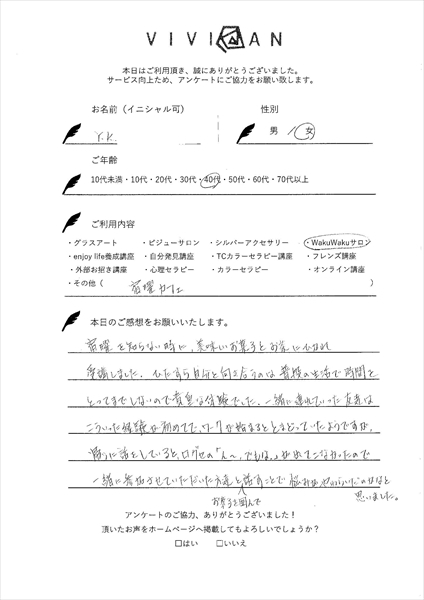 VIVIAN
本日はご利用頂き、誠にありがとうございました。
サービス向上ため、アンケートにご協力をお願い致します。
お名前（イニシャル可） 性別
Y.K. 男 / 女
ご年齢
10代未満・10代・20代・30代・40代・50代・60代・70代以上
ご利用内容
・グラスアート ・ビジューサロン ・シルバーアクセサリー ・WakuWakuサロン
・enjoy life養成講座 ・自分発見講座 ・TCカラーセラピー講座 ・フレンズ講座
・外部お招き講座 ・心理セラピー ・カラーセラピー ・オンライン講座
・その他（ 宿曜カフェ ）
本日のご感想をお願いいたします。
宿曜を知らない時に、美味しいお菓子とお茶にひかれ
受講しました。ひたすら自分と向き合うのは普段の生活で時間を
とってまでしないので貴重な体験でした。一緒に連れていった友達は
こういった経験が初めてで、ワークが始まるととまどっていたようですが、
帰りに話をしていると、口グセの「ん〜、でもぉ」が出てこなかったので
一緒に参加させていただいた方達と話すことで
お菓子を囲んで
思いました。
アンケートのご協力、ありがとうございました！
頂いたお声をホームページへ掲載してもよろしいでしょうか？
□はい □いいえ